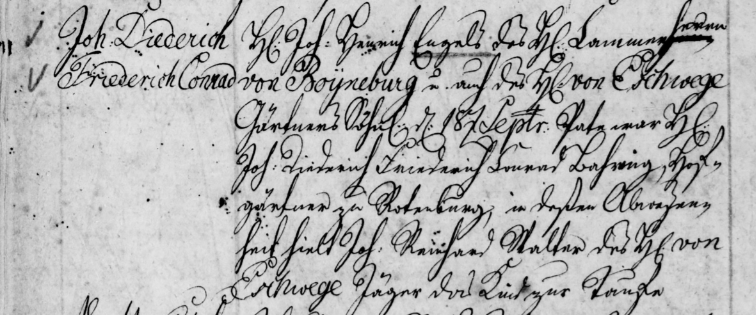 Joh. Diederich H. Joh. Henrich Engels des H. Cammerherrn
Friederich Conrad von Boÿneburg u. auch des H. von Eschwege
Gärtners Söhnl. d. 18t. Septr. Pate war H.
Joh. Diederich Friederich Conrad, Hof-
gärtner zu Rotenburg, in deßen Abwesen-
heit hielt Joh. Reinhard Walter des H. von
Eschwege Jäger das Kind zur Taufe